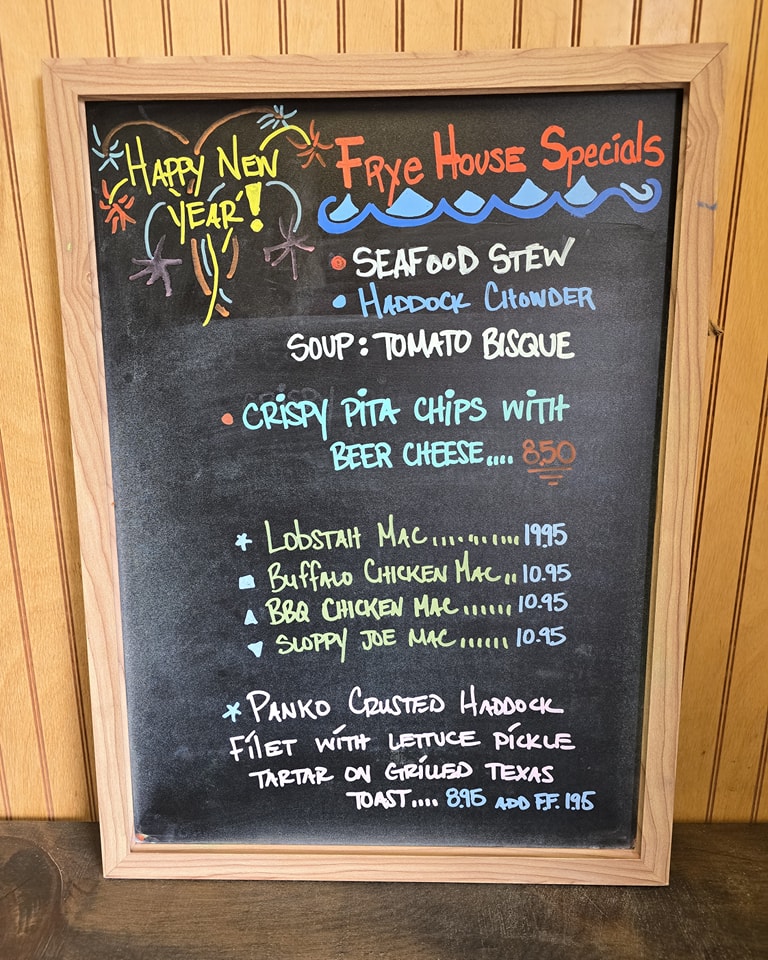 Happy New
Year!
Frye House Specials
• Seafood Stew
• Haddock Chowder
Soup: Tomato Bisque
• Crispy Pita Chips with
Beer Cheese.... 8.50
* Lobstah Mac.......... 19.95
■ Buffalo Chicken Mac.. 10.95
▲ BBQ Chicken Mac...... 10.95
▼ Sloppy Joe Mac...... 10.95
* Panko Crusted Haddock
Filet with lettuce pickle
tartar on grilled Texas
toast.... 8.95 add F.F. 1.95